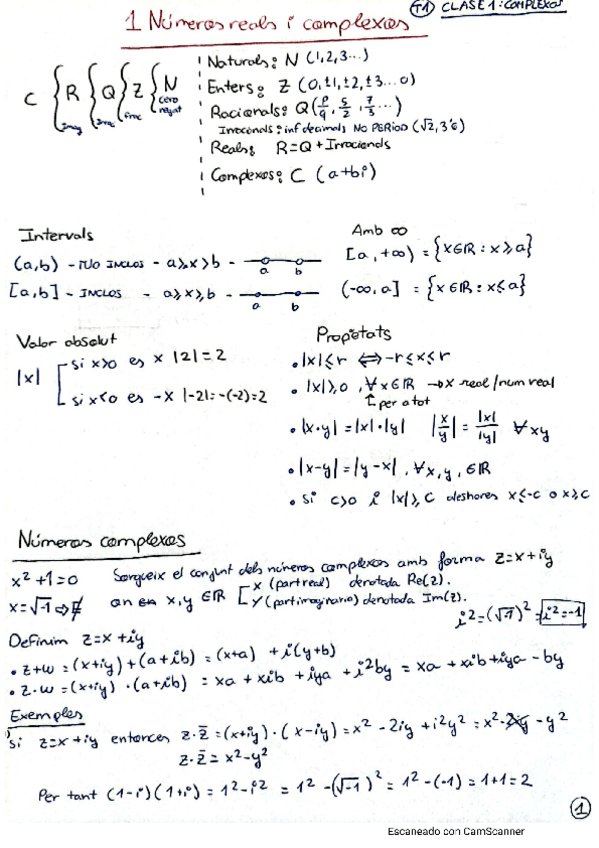 T1 CLASE 1: COMPLEXOS
1 Números reals i complexos
C { R { Q { Z { N
imag irrac frac cero negat
Naturals: N (1,2,3...)
Enters: Z (0,±1,±2,±3...0)
Racionals: Q (p/q, 5/2, 7/3...)
Irracionals: inf decimals NO PERIOD (√2, 3'6)
Reals: R=Q+Irracionals
Complexos: C (a+bi)
Intervals
(a,b) - NO INCLOS - a≥x>b - a b
[a,b] - INCLOS - a≥x≥b - a b
Amb ∞
[a,+∞) = {x∈ℝ: x≥a}
(-∞,a] = {x∈ℝ: x≤a}
Valor absolut
|x| si x>0 es x |2|=2
si x<0 es -x |-2|=-(-2)=2
Propietats
• |x|≤r ⟺ -r≤x≤r
• |x|≥0, ∀x∈ℝ → x real/num real
↳ per a tot
• |x·y|=|x|·|y| |x/y| = |x|/|y| ∀xy
• |x-y|=|y-x|, ∀x,y,∈ℝ
• Si c>0 i |x|≥c aleshores x≤-c o x≥c
Números complexos
x²+1=0 Sorgueix el conjunt dels números complexos amb forma z=x+iy
x=√-1 ⇒ ∄ on en x,y∈ℝ [ x (part real) denotada Re(z).
y (part imaginario) denotada Im(z).
i²=(√-1)²= i²=-1
Definim z=x+iy
• z+w=(x+iy)+(a+ib)=(x+a)+i(y+b)
• z·w=(x+iy)·(a+ib)=xa+xib+iya+i²by=xa+xib+iya-by
Exemples
Si z=x+iy entonces z·z̄=(x+iy)·(x-iy)=x²-2iy+i²y²=x²-2xy-y²
z·z̄=x²-y²
Per tant (1-i)(1+i)=1²-i²=1²-(√-1)²=1²-(-1)=1+1=2
1
Escaneado con CamScanner